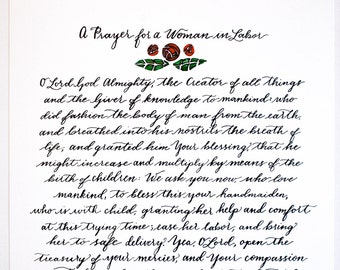 A Prayer for a Woman in Labor
O Lord God Almighty, the Creator of all things
and the Giver of knowledge to mankind who
did fashion the body of man from the earth,
and breathed into his nostrils the breath of
life, and granted him Your blessing, that he
might increase and multiply by means of the
birth of children: We ask you now, who love
mankind, to bless this your handmaiden,
who is with child, granting her help and comfort
at this trying time; ease her labor, and bring
her to safe delivery. Yea, O Lord, open the
treasury of your mercies, and Your compassion